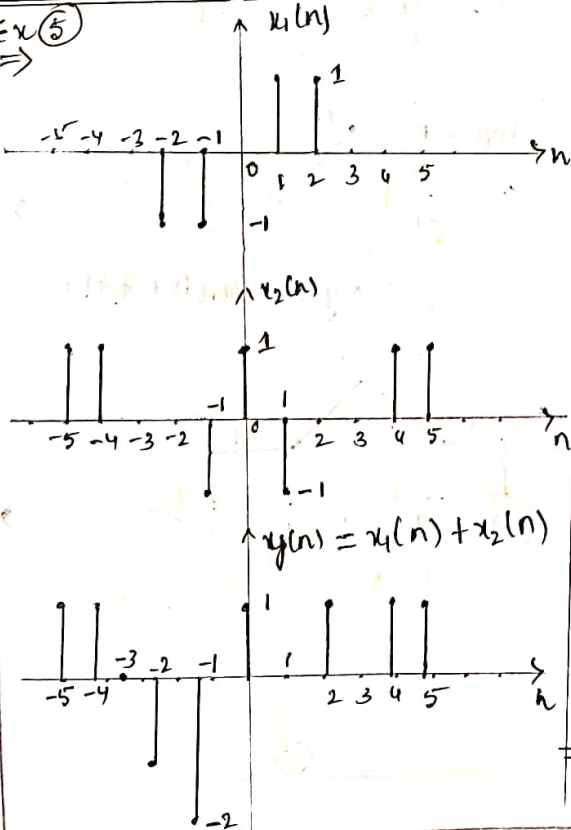 Ex 5
⇒
x₁(n)
1
-5 -4 -3 -2 -1
0 1 2 3 4 5 n
-1
x₂(n)
1
-1 1
-5 -4 -3 -2 0 2 3 4 5 n
-1
y(n) = x₁(n) + x₂(n)
1
-3 -2 -1 1
-5 -4 2 3 4 5 n
-2